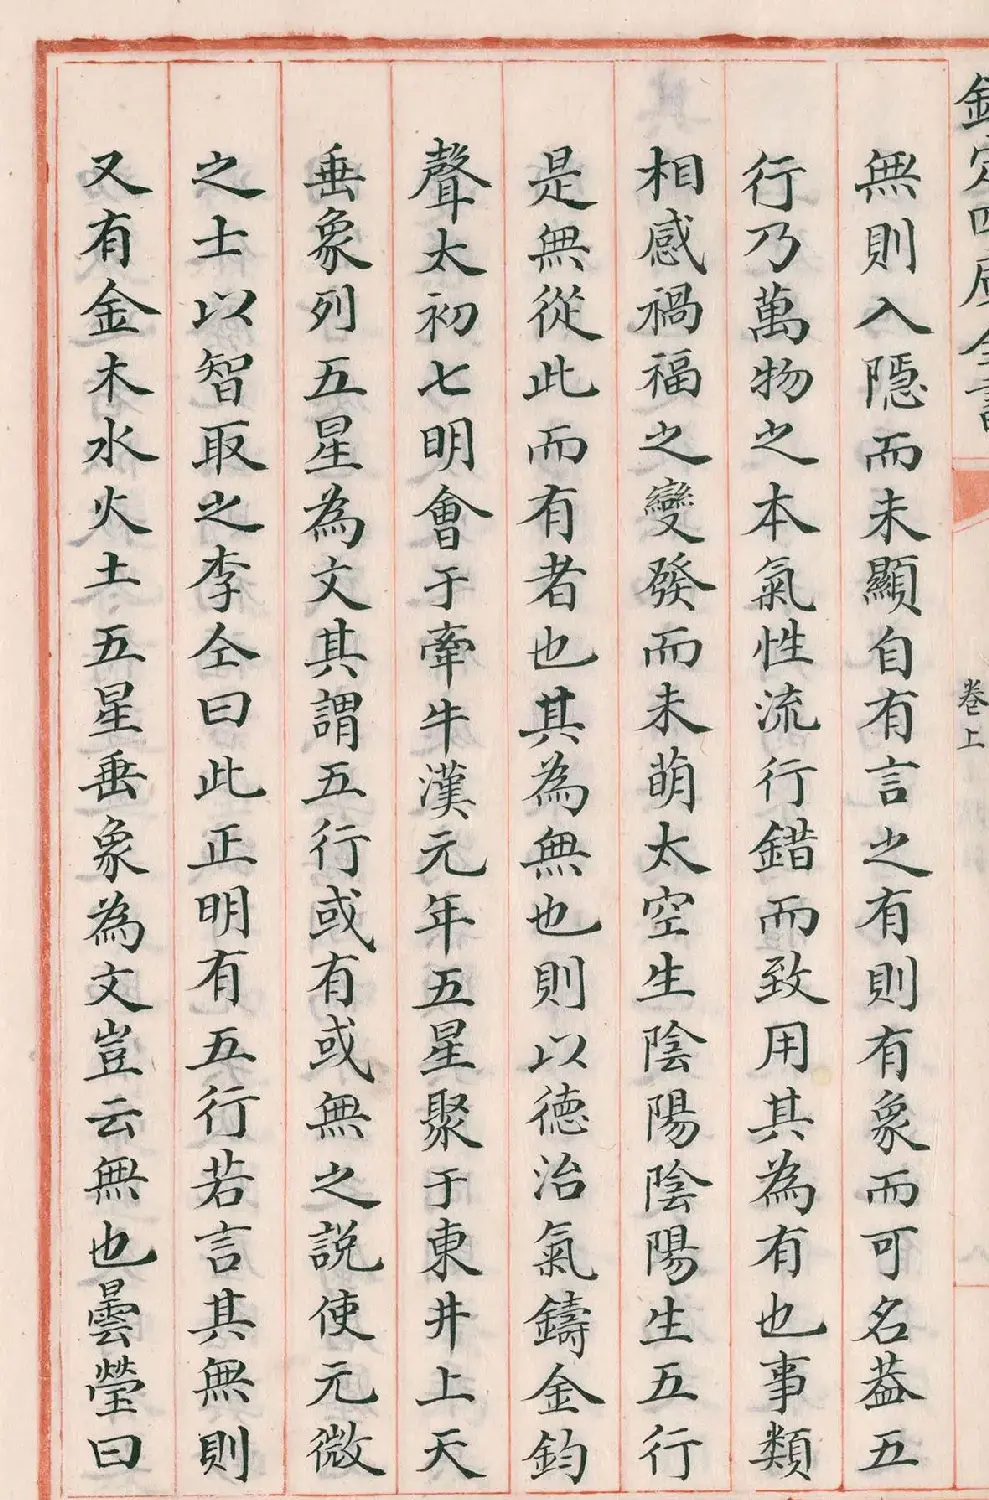 欽定四庫全書
卷上
無則入隱而未顯自有言之有則有象而可名葢五
行乃萬物之本氣性流行錯而致用其為有也事類
相感禍福之變發而未萌太空生陰陽陰陽生五行
是無從此而有者也其為無也則以德治氣鑄金鈞
聲太初七明會于牽牛漢元年五星聚于東井上天
垂象列五星為文其謂五行或有或無之說使元微
之士以智取之李仝曰此正明有五行若言其無則
又有金木水火土五星垂象為文豈云無也曇瑩曰